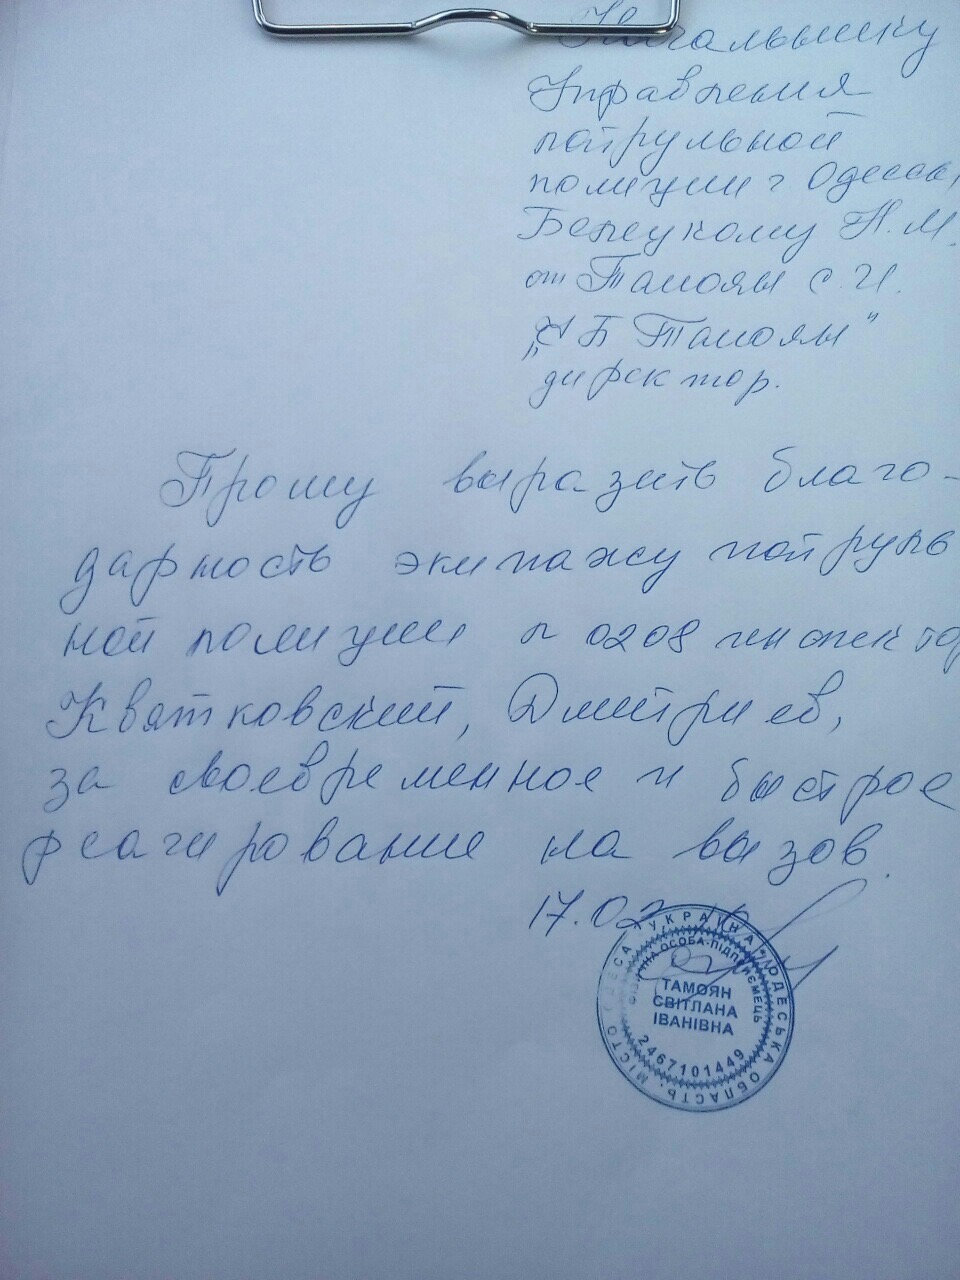 Начальнику
Управления
патрульной
полиции г Одессы
Белецкому Н.М.
от Тамоян С.И.
Б Тамоян"
директор.
Прошу выразить благо-
дарность экипажу патруль
ной полиции п 0208 инспектор
Квятковский, Дмитриев,
за своевременное и быстрое
реагирование на вызов.
17.02
УКРАЇНА * ОДЕСЬКА ОБЛАСТЬ * МІСТО ОДЕСА
ФІЗИЧНА ОСОБА-ПІДПРИЄМЕЦЬ
ТАМОЯН
СВІТЛАНА
ІВАНІВНА
2467101449